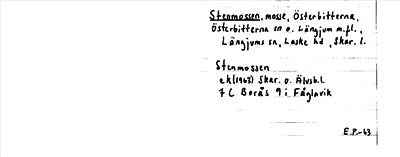 Stenmossen, mosse, Österbitterna,
Österbitterna sn o. Längjum m.fl.,
Längjums sn, Laske hd, Skar. l.
Stenmossen
ek (1963) Skar. o. Älvsb.l
7 C Borås 9 i Fåglavik
E.P.-63